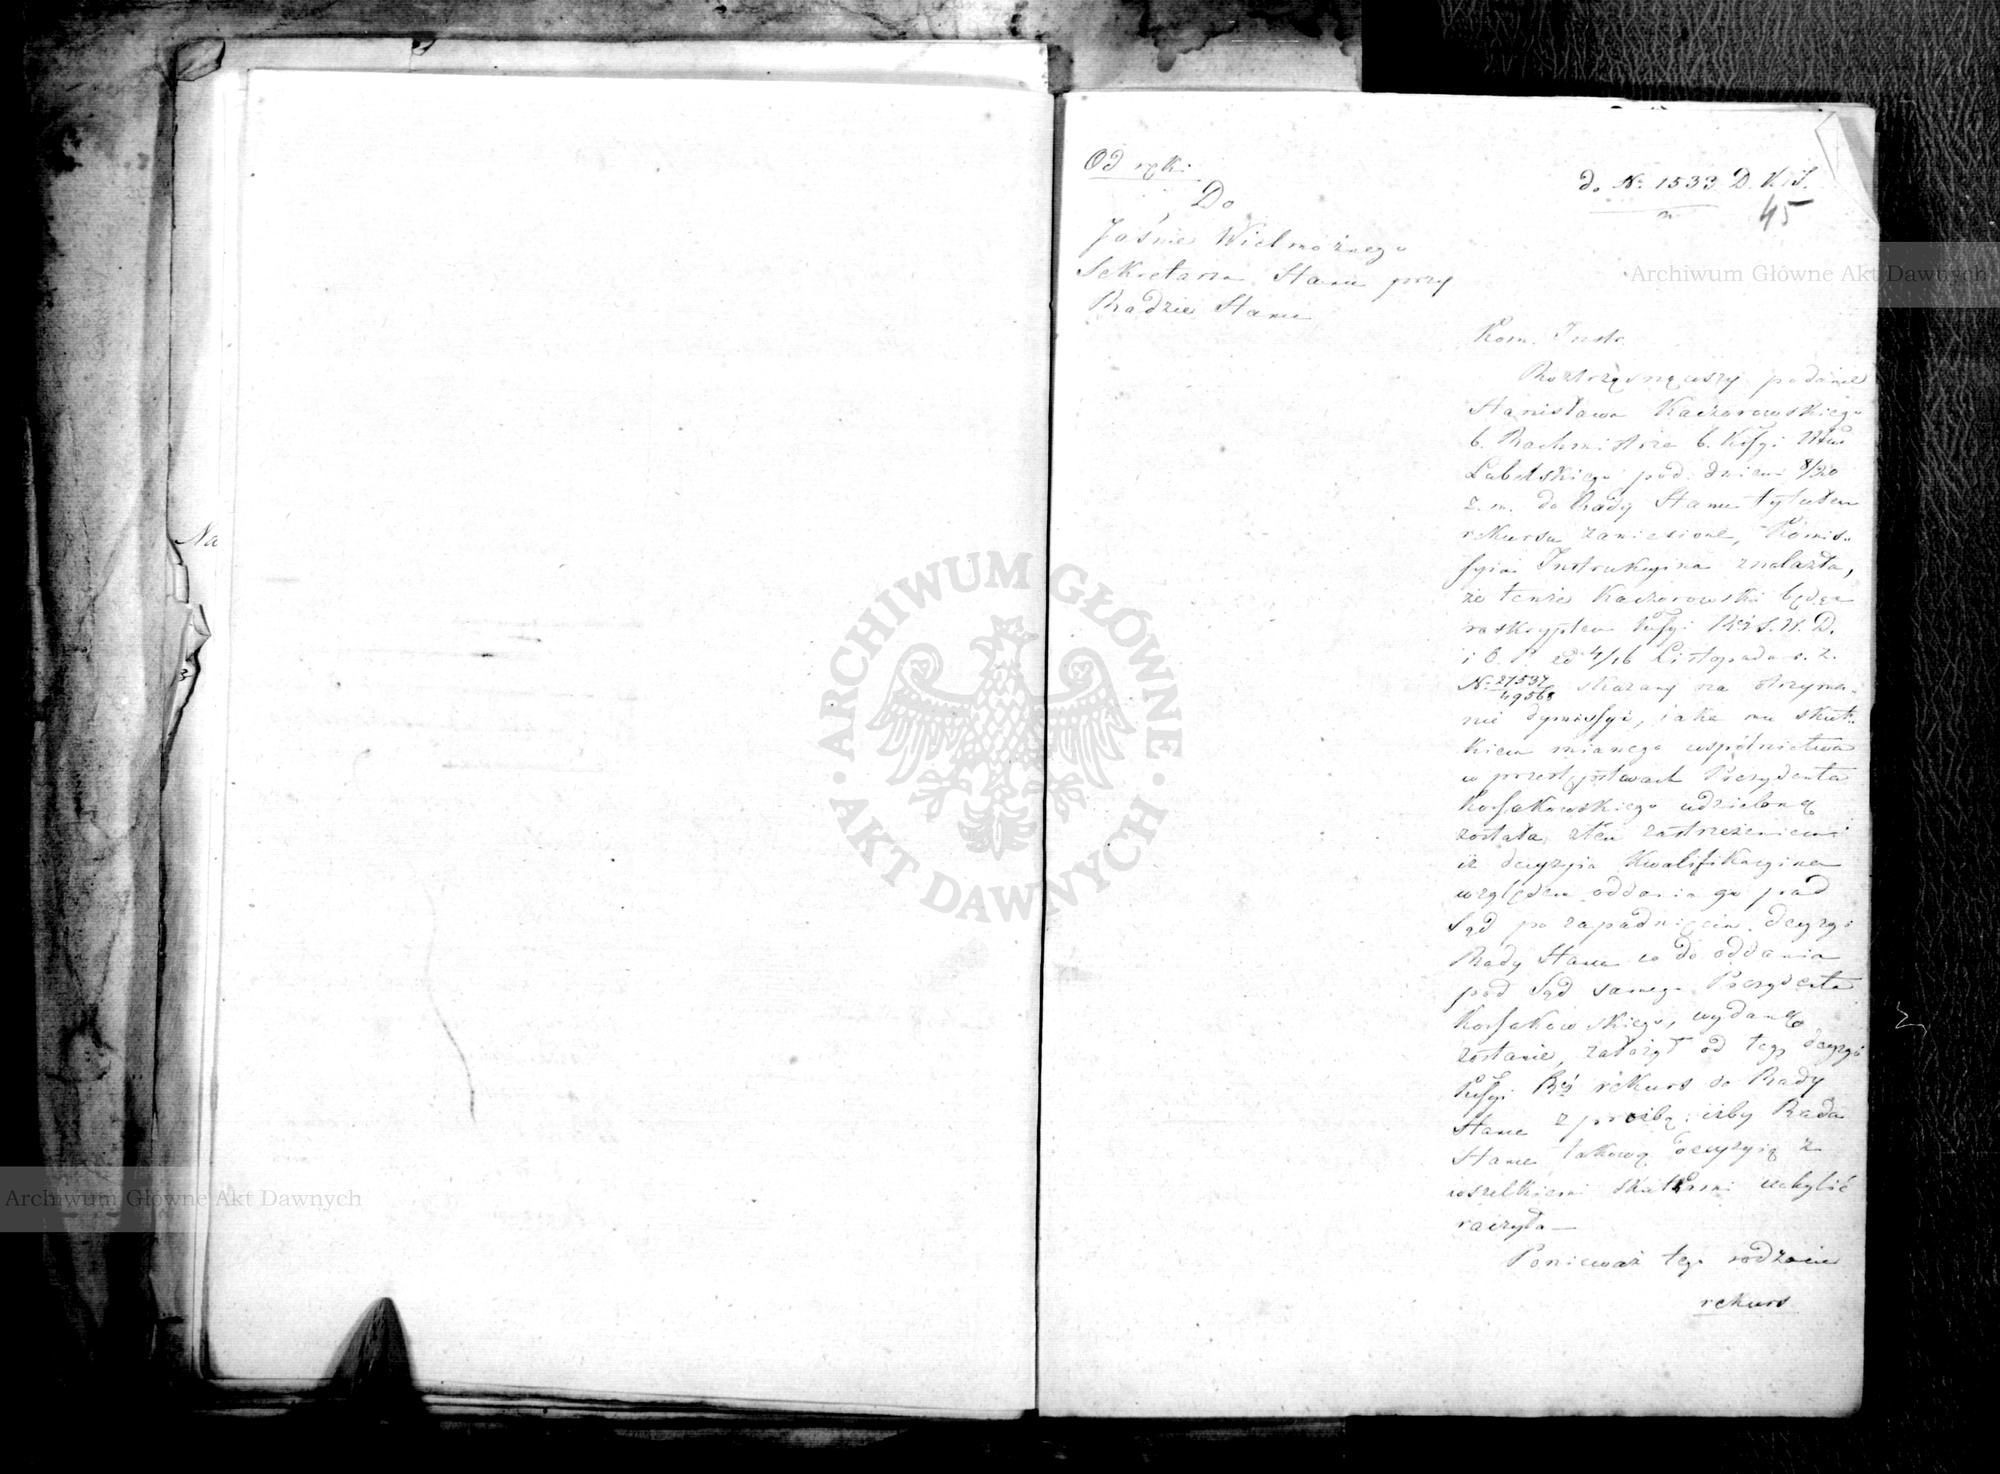 Od ręki
do N. 1533 D. K. I.
45
Do
Jaśnie Wielmożnego
Sekretarza Stanu przy
Radzie Stanu
Kom. Instr.
Roztrząsnąwszy podanie
Stanisława Kaczorowskiego
b. Rachmistrza b. Kssyi Wtwa
Lubelskiego pod dniem 8/20
z. m. do Rady Stanu tytułem
rekursu zaniesione, Komis-
syia Instrukcyina znalazła,
że tenże Kaczorowski będąc
reskryptem Kssyi Rz. S. W. D.
i O. P. z d. 4/16 Listopada r. z.
N. 27537/49568 skazany na otrzyma-
nie dymissyi, iaka mu skut-
kiem mianego wspólnictwa
w przestępstwach Prezydenta
Kossakowskiego udzieloną
została z tem zastrzeżeniem
iż decyzyia Kwalifikacyina
względem oddania go pod
Sąd po zapadnięciu decyzyi
Rady Stanu co do oddania
pod Sąd samego Prezydenta
Kossakowskiego, wydaną
zostanie, założył od tego decyzyi
Kssyi Rz. rekurs do Rady
Stanu z prośbą iżby Rada
Stanu takową decyzyią z
wszelkiemi skutkami uchylić
raczyła —
Ponieważ tego rodzaiu
rekurs
Na
Archiwum Główne Akt Dawnych
ARCHIWUM GŁÓWNE
AKT DAWNYCH
Archiwum Główne Akt Dawnych